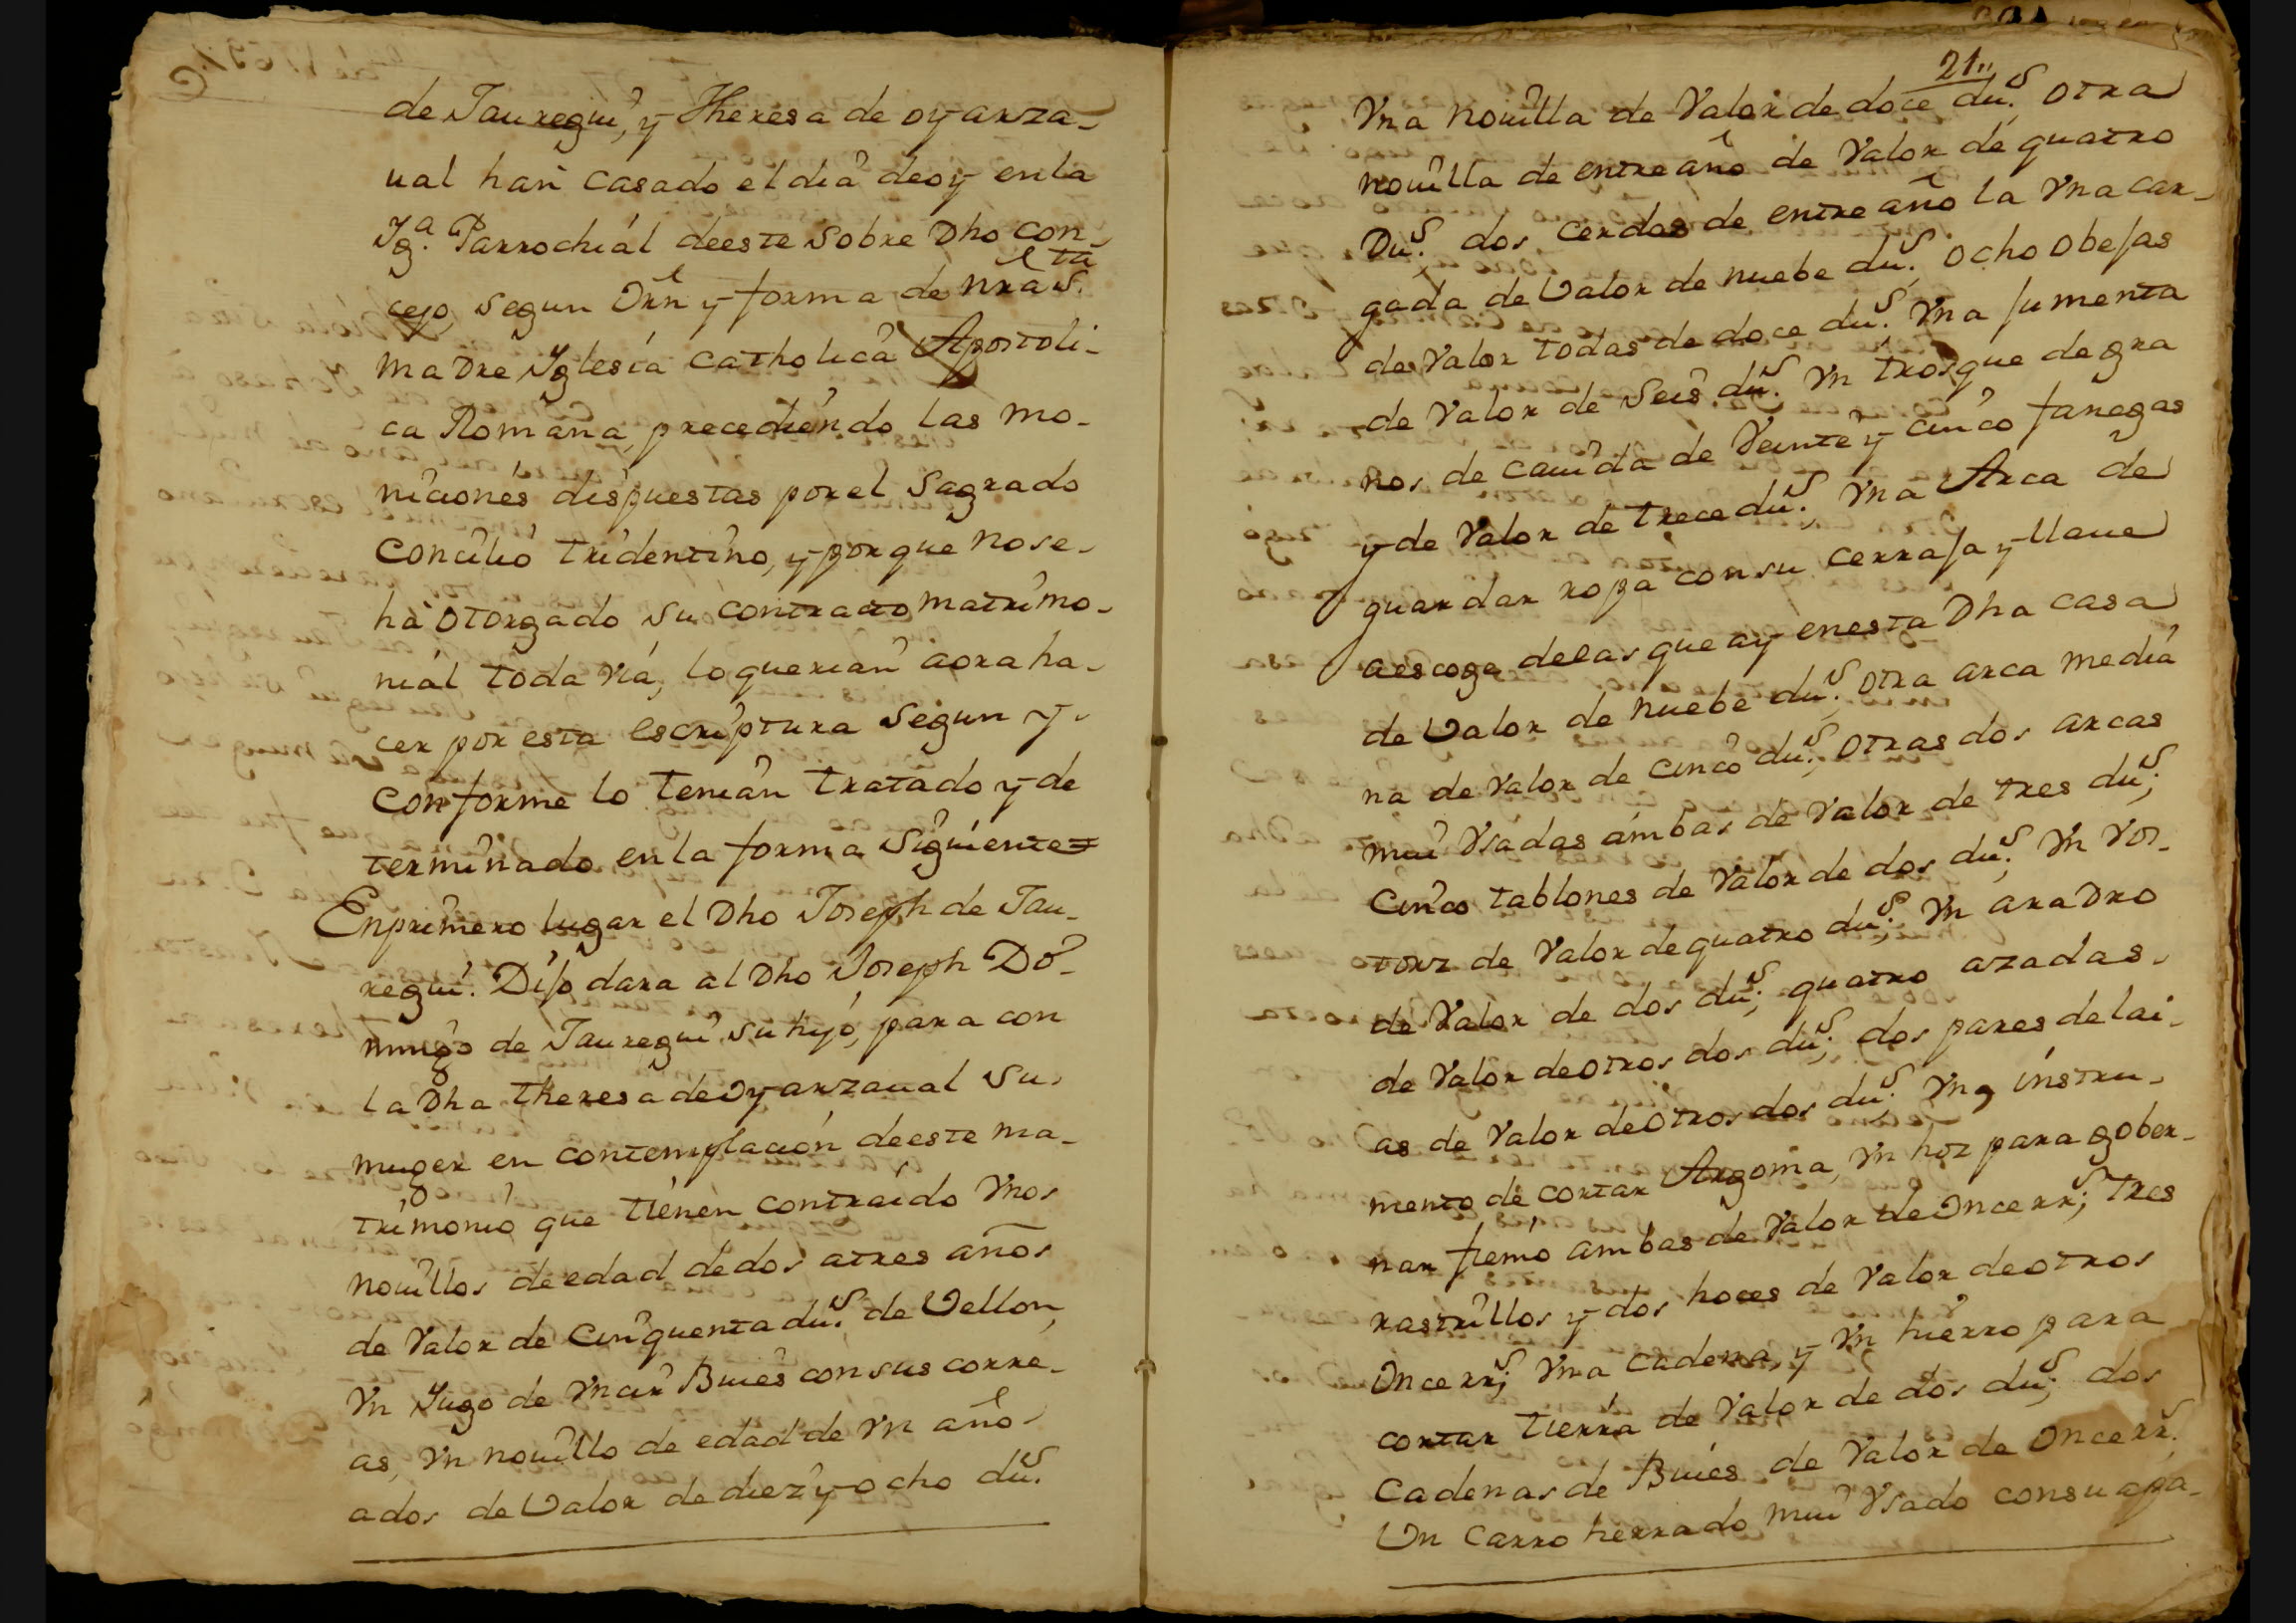 de Jauregui, y Theresa de oyarza-
ual han casado el dia deoy enla
Yg.ª Parrochial deeste sobre Dho con-
cejo, segun Orn y forma de nrã S.ta
madre Yglesia catholica Apostoli-
ca Romana, precediendo las mo-
niciones dispuestas por el Sagrado
Concilio tridentino, y porque no se-
ha otorgado su contracto matrimo-
nial toda via, lo querian aora ha-
cer por esta escriptura segun y-
conforme lo tenian tratado y de
terminado en la forma siguiente=
Enprimero lugar el Dho Joseph de Jau-
regui. Dijo dara al Dho Joseph Do-
mingo de Jauregui su hijo, para con
la Dha theresa de oyarzaual su-
muger en contemplacion deeste ma-
trimonio que tienen contraido Vnos
nouillos de edad de dos atres años
de Valor de Cinquenta du.s de Vellon,
Vn Yugo de Vncir Buies con sus corre-
as, Vn nouillo de edad de Vn año
ados de Valor de diez y ocho du.s
21..
Vna nouilla de Valor de doce du.s otra
nouilla de entre año de Valor de quatro
Du.s dos cerdas de entre año la Vna car-
gada de Valor de nuebe du.s, ocho obejas
de Valor todas de doce du.s Vna jumenta
de Valor de Seis du.s Vn trosque de gra
nos de cauida de Veinte y cinco fanegas
y de Valor de trece du.s, Vna Arca de
guardar ropa con su cerraja y llaue
aescoga delas que ay enesta Dha casa
de Valor de nuebe du.s, otra arca media
na de Valor de cinco du.s, otras dos arcas
mui Vsadas ambas de Valor de tres du.s,
Cinco tablones de Valor de dos du.s, Vn Vos-
torz de Valor de quatro du.s, Vn aradro
de Valor de dos du.s, quatro azadas-
de Valor de otros dos du.s, dos pares de lai-
as de Valor de otros dos du.s, Vn instru-
mento de cortar Argoma, Vn hoz para gober-
nar fiemo ambas de Valor de Once rr.s, tres
rastrillos y dos hoces de Valor de otros
Once rr.s, Vna cadena, y Vn hierro para
cortar tierra de Valor de dos du.s, dos
Cadenas de Buies de Valor de Once rr.s
Un Carro herrado mui Vsado con su apa-